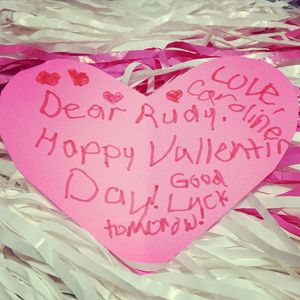 Dear Rudy.
Happy Vallentin
Day! Good
Luck
tomorrow!
Love,
Caroline